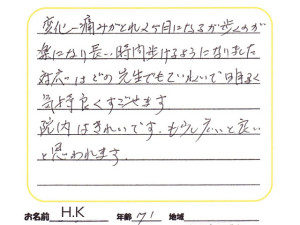 変化 痛みがとれ2ヶ月になるが歩くのが
楽になり長い時間歩けるようになりました
対応はどの先生でもていねいで明るく
気持良くすごせます
院内はきれいです。もう少し広いと良い
と思われます。
お名前 H.K 年齢 71 地域